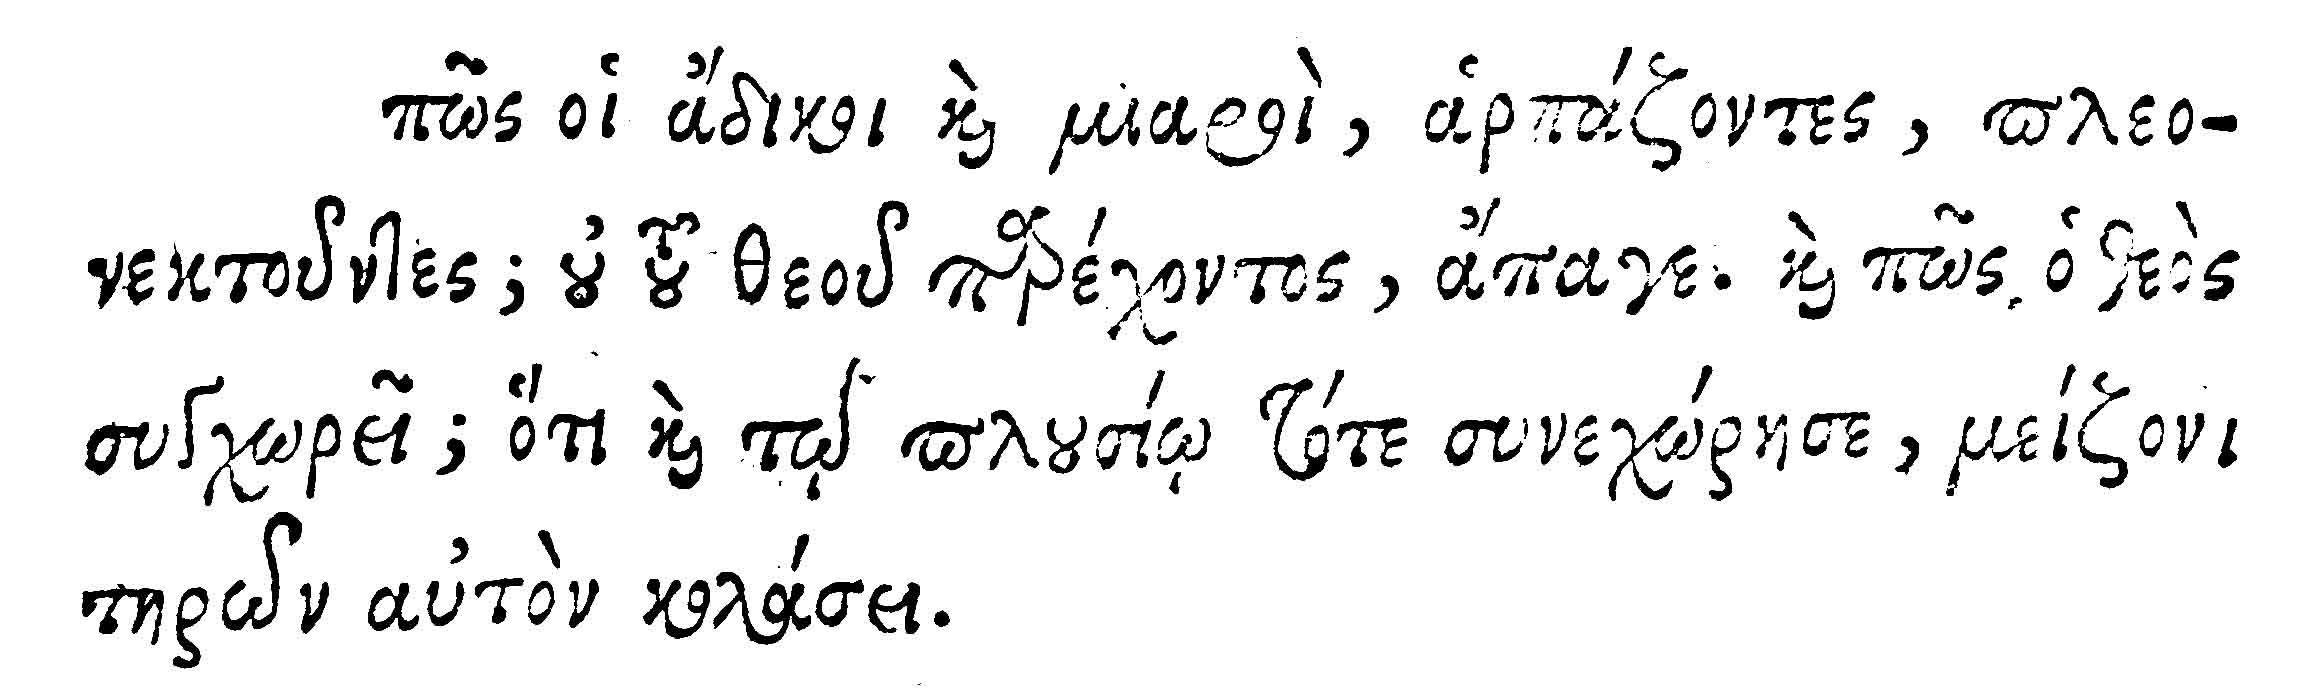 πῶς οἱ ἄδικοι καὶ μιαροὶ, ἁρπάζοντες, πλεο-
νεκτοῦντες; οὐ τοῦ θεοῦ παρέχοντος, ἄπαγε. καὶ πῶς ὁ θεὸς
συγχωρεῖ; ὅτι καὶ τῷ πλουσίῳ τότε συνεχώρησε, μείζονι
τηρῶν αὐτὸν κολάσει.